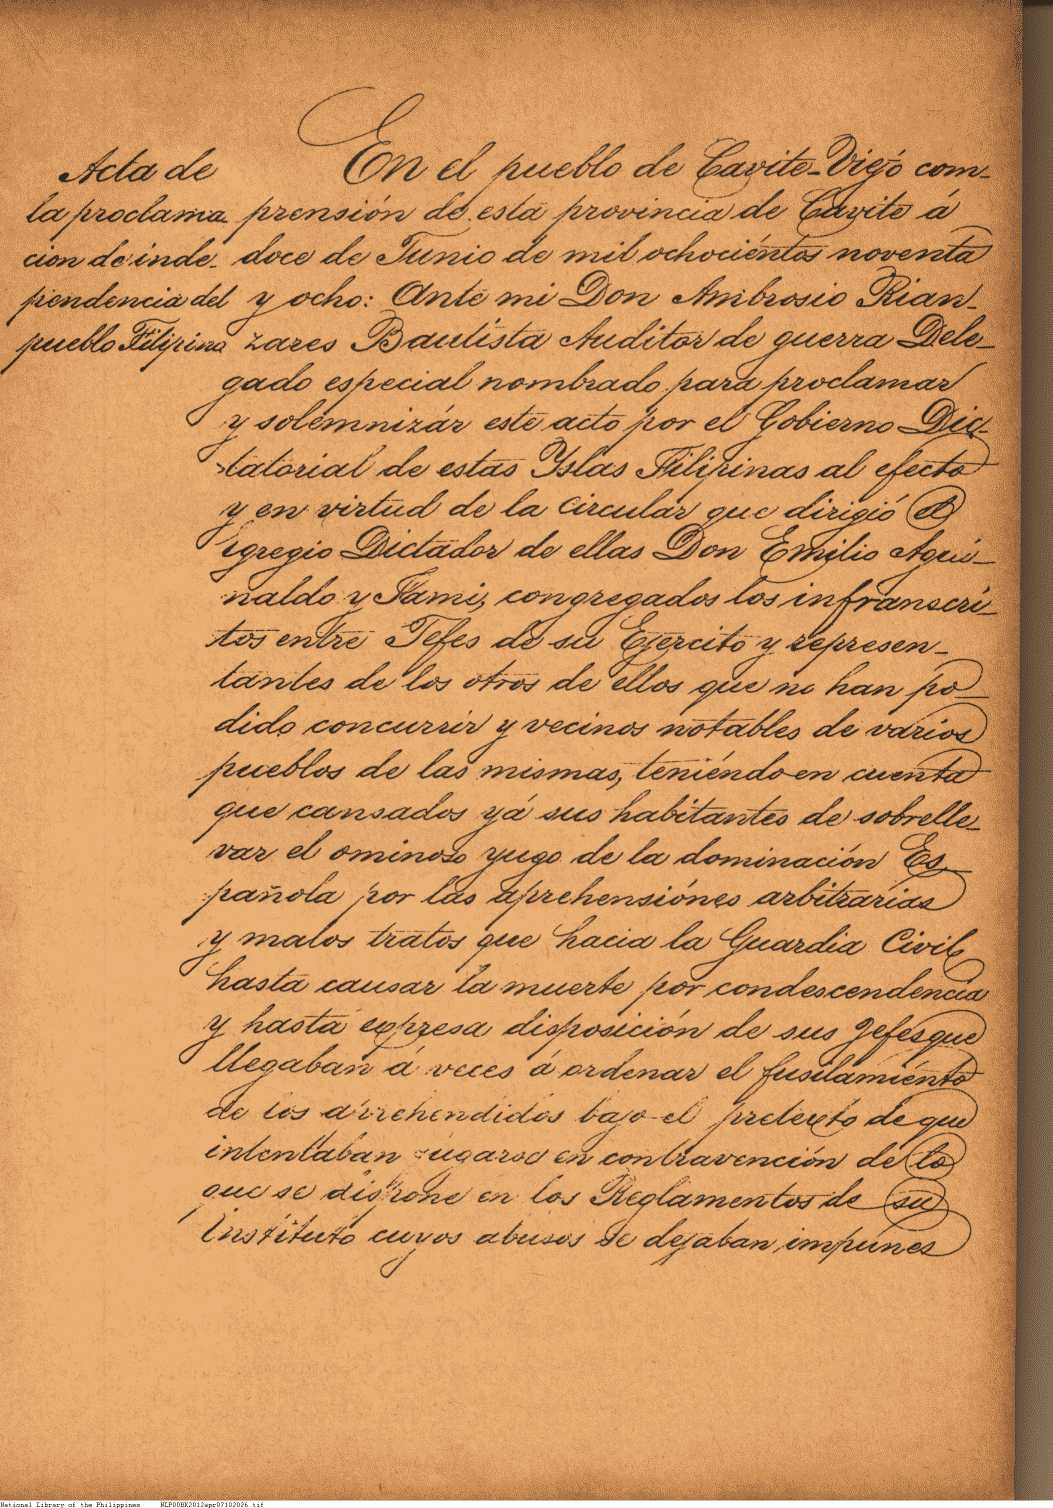 Acta de
la proclama-
cion de inde-
pendencia del
pueblo Filipino
En el pueblo de Cavite-Viejo com-
prensión de esta provincia de Cavite á
doce de Junio de mil ochociéntos noventa
y ocho: Ante mi Don Ambrosio Rian-
zares Bautista Auditor de guerra Dele-
gado especial nombrado para proclamar
y solemnizár este acto por el Gobierno Dic-
tatorial de estas Yslas Filipinas al efecto
y en virtud de la circular que dirigió el
Egregio Dictador de ellas Don Emilio Agui-
naldo y Fami, congregados los infranscri-
tos entre Jefes de su Ejercito y represen-
tantes de los otros de ellos que no han po-
dido concurrir y vecinos notables de varios
pueblos de las mismas, teniéndo en cuenta
que cansados yá sus habitantes de sobrelle-
var el ominoso yugo de la dominación Es-
pañola por las aprehensiónes arbitrarias
y malos tratos que hacia la Guardia Civil
hasta causar la muerte por condescendencia
y hasta expresa disposición de sus Jefes que
llegaban á veces á ordenar el fusilamiénto
de los aprehendidos bajo el pretexto de que
intentaban fugarse en contravención de lo
que se dispone en los Reglamentos de su
Instituto cuyos abusos se dejaban impunes
National Library of the Philippines NLPOOBK2012apr07102026.tif